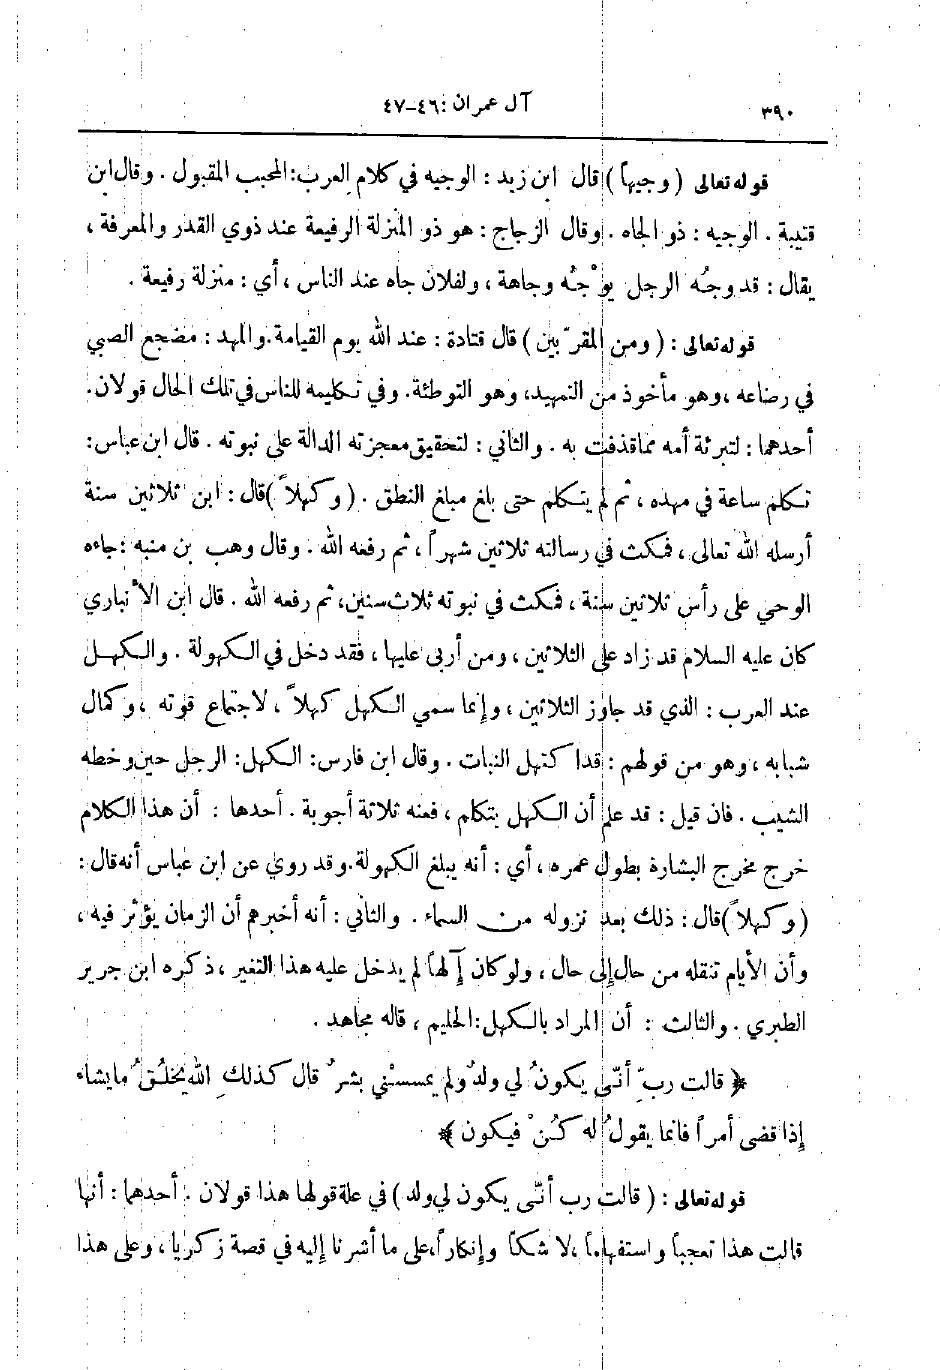 ٣٩٠
آل عمران : ٤٦-٤٧
قوله تعالى ( وجيهاً ) قال ابن زيد : الوجيه في كلام العرب : المحبب المقبول . وقال ابن
قتيبة . الوجيه : ذو الجاه . وقال الزجاج : هو ذو المنزلة الرفيعة عند ذوي القدر والمعرفة ،
يقال : قد وجُه الرجل يوْجُه وجاهة ، ولفلان جاه عند الناس ، أي : منزلة رفيعة .
قوله تعالى : ( ومن المقرّبين ) قال قتادة : عند الله يوم القيامة . والمهد : مضجع الصبي
في رضاعه ، وهو مأخوذ من التمهيد ، وهو التوطئة . وفي تكليمه للناس في تلك الحال قولان .
أحدهما : لتبرئة أمه مما قذفت به . والثاني : لتحقيق معجزته الدالة على نبوته . قال ابن عباس :
تكلم ساعة في مهده ، ثم لم يتكلم حتى بلغ مبلغ النطق . ( وكهلاً ) قال : ابن ثلاثين سنة
أرسله الله تعالى ، فمكث في رسالته ثلاثين شهراً ، ثم رفعه الله . وقال وهب بن منبه : جاءه
الوحي على رأس ثلاثين سنة ، فمكث في نبوته ثلاث سنين ، ثم رفعه الله . قال ابن الأنباري
كان عليه السلام قد زاد على الثلاثين ، ومن أربى عليها ، فقد دخل في الكهولة . والكهل
عند العرب : الذي قد جاوز الثلاثين ، وإنما سمي الكهل كهلاً ، لاجتماع قوته ، وكمال
شبابه ، وهو من قولهم : قد اكتهل النبات . وقال ابن فارس : الكهل : الرجل حين وخطه
الشيب . فان قيل : قد علم أن الكهل يتكلم ، فعنه ثلاثة أجوبة . أحدها : أن هذا الكلام
خرج مخرج البشارة بطول عمره ، أي : أنه يبلغ الكهولة . وقد روي عن ابن عباس أنه قال :
( وكهلاً ) قال : ذلك بعد نزوله من السماء . والثاني : أنه أخبرهم أن الزمان يؤثر فيه ،
وأن الأيام تنقله من حال إلى حال ، ولو كان آلهاً لم يدخل عليه هذا التغير ، ذكره ابن جرير
الطبري . والثالث : أن المراد بالكهل : الحليم ، قاله مجاهد .
﴿ قالت ربّ أنّى يكونُ لي ولدٌ ولم يمسسْني بشرٌ قال كذلكِ الله يخلُقُ ما يشاء
إذا قضى أمراً فانما يقولُ له كُنْ فيكون ﴾
قوله تعالى : ( قالت رب أنّى يكون لي ولد ) في علة قولها هذا قولان . أحدهما : أنها
قالت هذا تعجباً واستفهاماً ، لا شكاً وإنكاراً ، على ما أشرنا إليه في قصة زكريا ، وعلى هذا